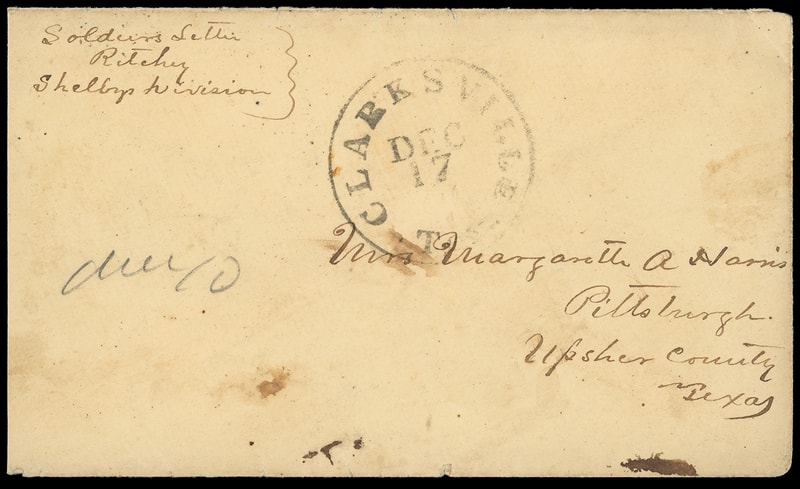 Soldiers Letter
Ritchey
Shelbys Division
CLARKSVILLE
DEC
17
Due 10
Mrs Margarette A Harris
Pittsburgh.
Upsher County
Texas